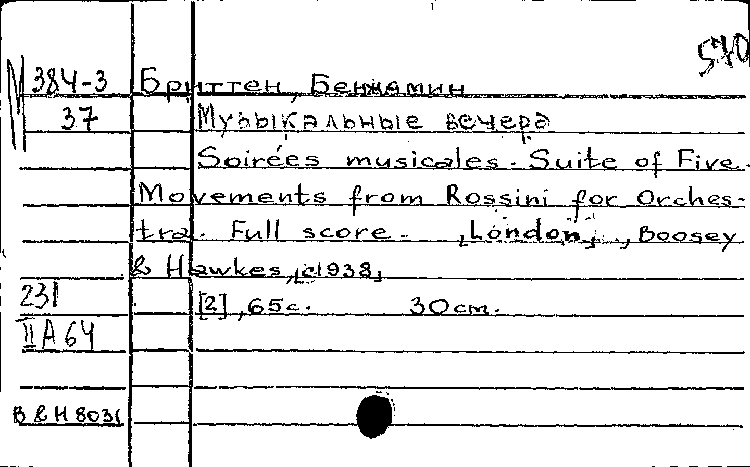 570
М 384-3 Бриттен, Бенжамин
37 Музыкальные вечера
Soirées musicales. Suite of Five
Movements from Rossini for Orches-
tra. Full score. [London], Boosey
& Hawkes, [c1938]
231 [2], 65с. 30cm.
II A 64
B & H 8031